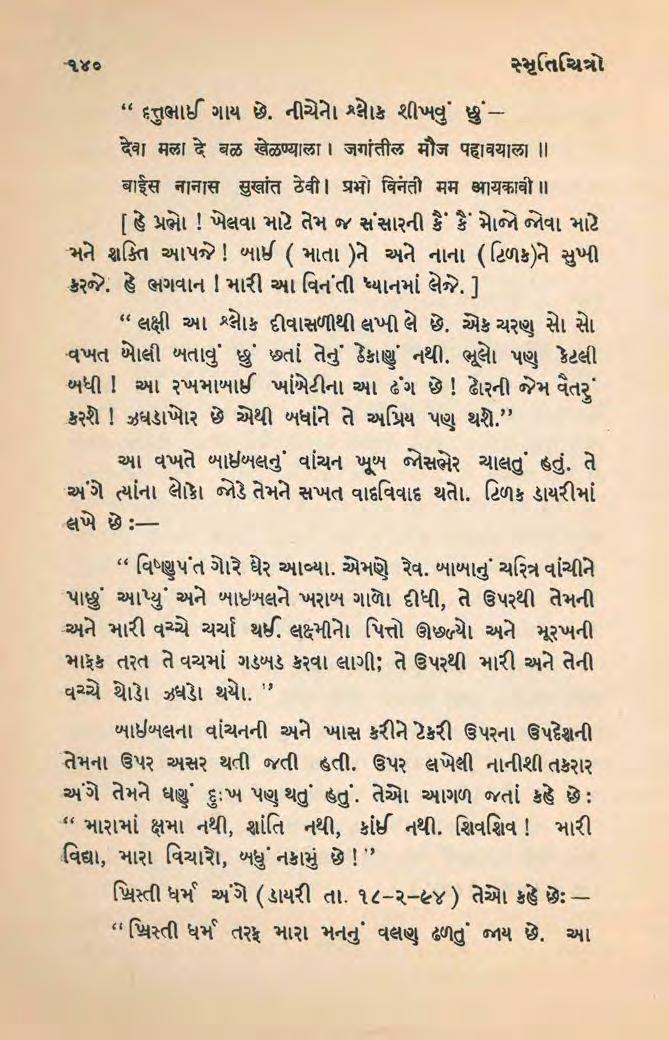 ૧૪૦ સ્મૃતિચિત્રો
“ દત્તુભાઈ ગાય છે. નીચેનો શ્લોક શીખવું છું—
देवा मला दे बळ खेळण्याला । जगांतील मौज पहावयाला ॥
बाईस नानास सुखांत ठेवी । प्रभो विनंती मम आयकावी ॥
[ હે પ્રભો ! ખેલવા માટે તેમ જ સંસારની કૈં કૈં મોજો જોવા માટે
મને શક્તિ આપજે ! બાઈ ( માતા )ને અને નાના (ટિળક)ને સુખી
કરજે. હે ભગવાન ! મારી આ વિનંતી ધ્યાનમાં લેજે. ]
“ લક્ષી આ શ્લોક દીવાસળીથી લખી લે છે. એક ચરણ સો સો
વખત બોલી બતાવું છું છતાં તેનું ઠેકાણું નથી. ભૂલો પણ કેટલી
બધી ! આ રખમાબાઈ ખાંબેટીના આ ઢંગ છે ! ઢોરની જેમ વૈતરું
કરશે ! ઝઘડાખોર છે એથી બધાંને તે અપ્રિય પણ થશે.”
આ વખતે બાઇબલનું વાંચન ખૂબ જોસભેર ચાલતું હતું. તે
અંગે ત્યાંના લોકો જોડે તેમને સખત વાદવિવાદ થતો. ટિળક ડાયરીમાં
લખે છે :—
“ વિષ્ણુપંત ગોરે ઘેર આવ્યા. એમણે રેવ. બાબાનું ચરિત્ર વાંચીને
પાછું આપ્યું અને બાઇબલને ખરાબ ગાળો દીધી, તે ઉપરથી તેમની
અને મારી વચ્ચે ચર્ચા થઈ. લક્ષ્મીનો પિત્તો ઊછળ્યો અને મૂરખની
માફક તરત તે વચમાં ગડબડ કરવા લાગી; તે ઉપરથી મારી અને તેની
વચ્ચે થોડો ઝઘડો થયો. ”
બાઈબલના વાંચનની અને ખાસ કરીને ટેકરી ઉપરના ઉપદેશની
તેમના ઉપર અસર થતી જતી હતી. ઉપર લખેલી નાનીશી તકરાર
અંગે તેમને ઘણું દુઃખ પણ થતું હતું. તેઓ આગળ જતાં કહે છે :
“ મારામાં ક્ષમા નથી, શાંતિ નથી, કાંઈ નથી. શિવશિવ ! મારી
વિદ્યા, મારા વિચારો, બધું નકામું છે ! ”
ખ્રિસ્તી ધર્મ અંગે ( ડાયરી તા. ૧૮–૨–૯૪ ) તેઓ કહે છેઃ —
“ ખ્રિસ્તી ધર્મ તરફ મારા મનનું વલણ ઢળતું જાય છે. આ